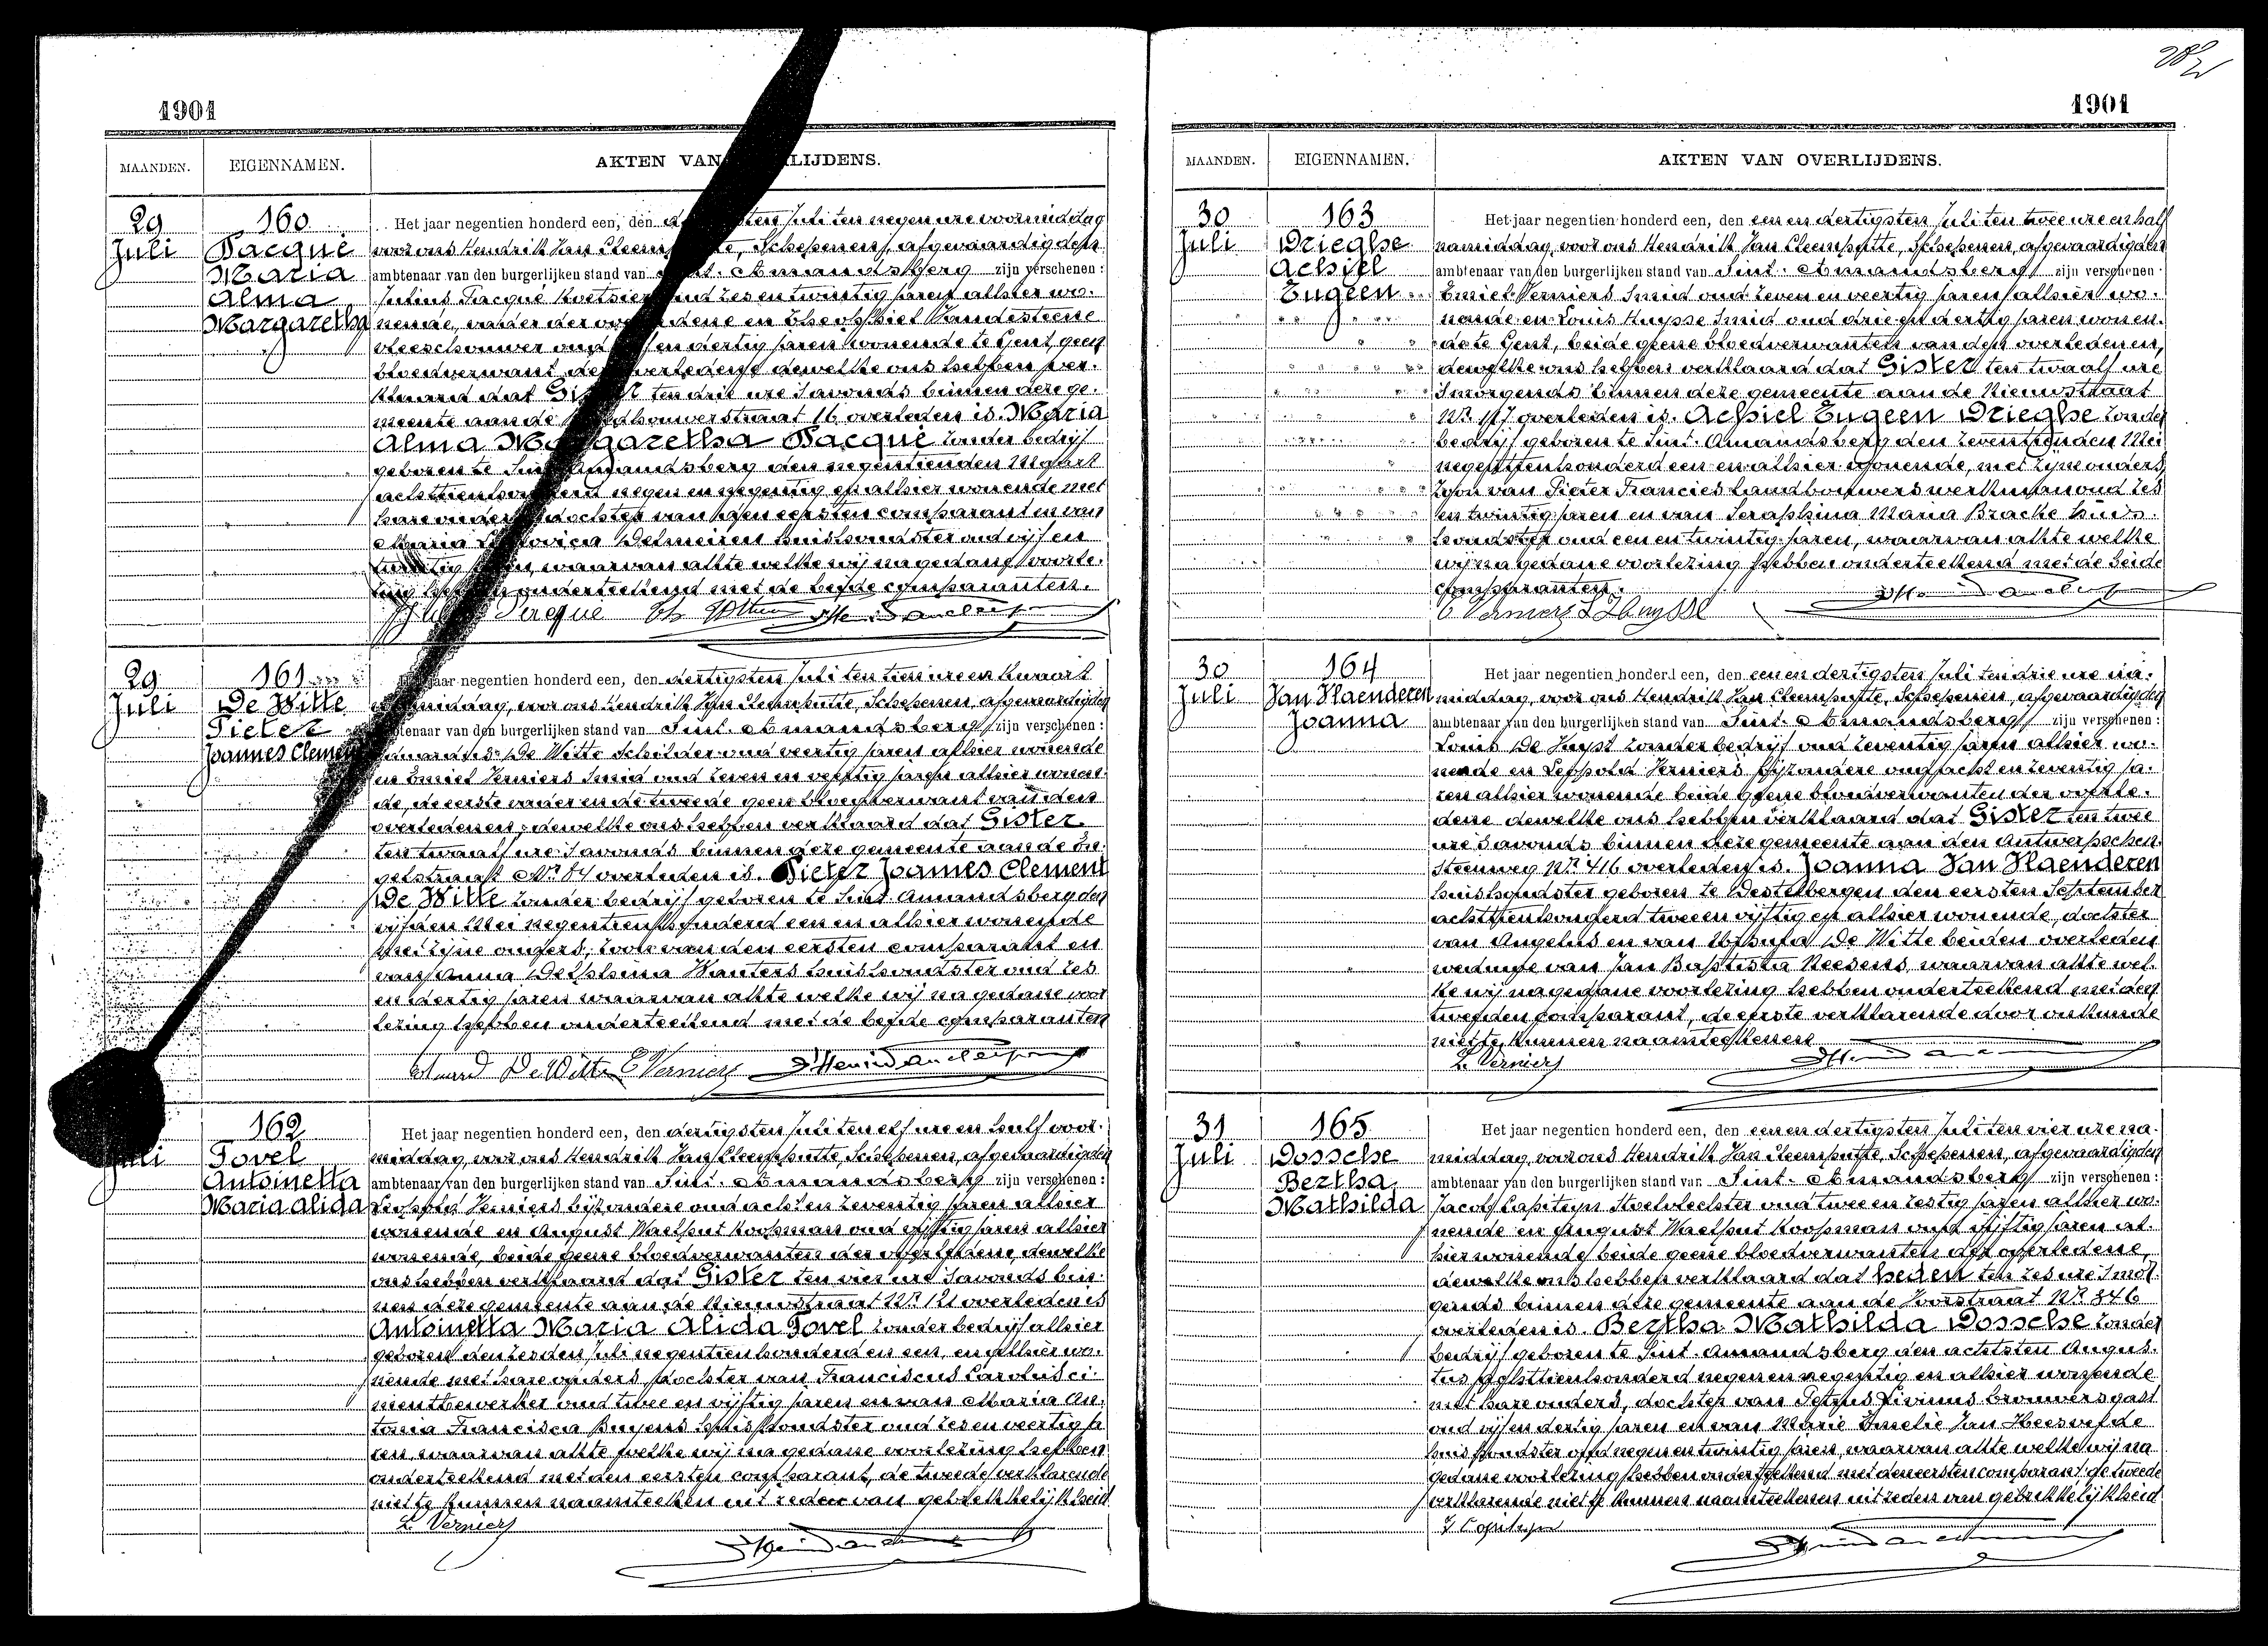 1901
MAANDEN. EIGENNAMEN. AKTEN VAN LIJDENS.
29 Juli
160
Pacqué
Maria
Alma
Margaretha
Het jaar negentien honderd een, den sten Juli ten negen ure voormiddag
voor ons Hendrik Van Cleemputte, Schepenen, afgevaardigden
ambtenaar van den burgerlijken stand van Sint. Amandsberg zijn verschenen:
Julius Pacqué Koetsier oud zes en twintig jaren alhier wo-
nende, vader der overledene en Theophiel Vandesteene
vleeschouwer oud en dertig jaren wonende te Gent, geen
bloedverwant der overledene dewelke ons hebben ver-
klaard dat Gister ten drie ure s'avonds binnen deze ge-
meente aan de houwerstraat 16 overleden is. Maria
Alma Margaretha Pacqué zonder bedrijf
geboren te Sint Amandsberg den negentienden Maart
achttienhonderd negen en negentig en alhier wonende met
hare ouders dochter van den eersten comparant en van
Maria Ludovica Delmeiren huishoudster oud vijf en
twintig jaren waarvan akte welke wij na gedane voorle-
zing hebben onderteekend met de beide comparanten.
29 Juli
161
De Witte
Pieter
Joannes Clement
Het jaar negentien honderd een, den dertigsten Juli ten tien ure en kwaart
voormiddag, voor ons Hendrik Van Cleemputte, Schepenen, afgevaardigden
ambtenaar van den burgerlijken stand van Sint. Amandsberg zijn verschenen:
De Witte Schilder oud veertig jaren alhier wonende
en Emiel Verniers Smid oud zeven en veertig jaren alhier wonen-
de, de eerste vader en de tweede geen bloedverwant van den
overledenen, dewelke ons hebben verklaard dat Gister
ten twaalf ure s'avonds binnen deze gemeente aan de En-
gelstraat Nr 84 overleden is. Pieter Joannes Clement
De Witte zonder bedrijf geboren te Sint Amandsberg den
vijfden Mei negentienhonderd een en alhier wonende
met zijne ouders, zoon van den eersten comparant en
van Anna Delphina Wauters huishoudster oud zes
en dertig jaren waarvan akte welke wij na gedane voor
lezing hebben onderteekend met de beide comparanten
Eduard De Witte E Verniers
Juli
162
Tovel
Antoinetta
Maria Alida
Het jaar negentien honderd een, den dertigsten Juli ten elf ure en half voor-
middag, voor ons Hendrik Van Cleemputte, Schepenen, afgevaardigden
ambtenaar van den burgerlijken stand van Sint. Amandsberg zijn verschenen:
Leopold Verniers bijzondere oud acht en zeventig jaren alhier
wonende en August Waelput Koopman oud vijftig jaren alhier
wonende, beide geene bloedverwanten der overledene, dewelke
ons hebben verklaard dat Gister ten vier ure s'avonds bin-
nen deze gemeente aan de Nieuwstraat Nr 121 overleden is
Antoinetta Maria Alida Tovel zonder bedrijf alhier
geboren den zesden Juli negentien honderd en een, en alhier wo-
nende met hare ouders, dochter van Franciscus Carolus ci-
mentbewerker oud twee en vijftig jaren en van Maria An-
tonia Francisca Buyens huishoudster oud zes en veertig ja
ren, waarvan akte welke wij na gedane voorlezing hebben
onderteekend met den eersten comparant, de tweede verklarende
niet te kunnen naamteeken uit reden van gebrekkelijkheid
L. Verniers
1901
MAANDEN. EIGENNAMEN. AKTEN VAN OVERLIJDENS.
30 Juli
163
Drieghe
Achiel
Eugeen
Het jaar negentien honderd een, den een en dertigsten Juli ten twee ure en half
namiddag, voor ons Hendrik Van Cleemputte, Schepenen, afgevaardigden
ambtenaar van den burgerlijken stand van Sint. Amandsberg zijn verschenen
Emiel Verniers Smid oud zeven en veertig jaren alhier wo-
nende en Louis Huysse Smid oud drie en dertig jaren wonen-
de te Gent, beide geene bloedverwanten van den overledenen,
dewelke ons hebben verklaard dat Gister ten twaalf ure
s'morgends binnen deze gemeente aan de Nieuwstraat
Nr 117 overleden is. Achiel Eugeen Drieghe zonder
bedrijf geboren te Sint. Amandsberg den zeventienden Mei
negentienhonderd een en alhier wonende, met zijne ouders,
zoon van Pieter Francies Landbouwerswerkman oud zes
en twintig jaren en van Seraphina Maria Bracke huis-
houdster oud een en twintig jaren, waarvan akte welke
wij na gedane voorlezing hebben onderteekend met de beide
comparanten.
E Verniers L Huysse
30 Juli
164
Van Vlaenderen
Joanna
Het jaar negentien honderd een, den een en dertigsten Juli ten drie ure na-
middag, voor ons Hendrik Van Cleemputte, Schepenen, afgevaardigden
ambtenaar van den burgerlijken stand van Sint. Amandsberg zijn verschenen:
Louis De Huyst zonder bedrijf oud zeventig jaren alhier wo-
nende en Leopold Verniers bijzondere oud acht en zeventig ja-
ren alhier wonende beide geene bloedverwanten der overle-
dene dewelke ons hebben verklaard dat Gister ten twee
ure s'avonds binnen deze gemeente aan den Antwerpschen-
steenweg Nr 416 overleden is. Joanna Van Vlaenderen
huishoudster geboren te Destelbergen den eersten September
achttienhonderd twee en vijftig en alhier wonende, dochter
van Angelus en van De Witte beiden overleden
weduwe van Jan Baptista Reesens, waarvan akte wel-
ke wij na gedane voorlezing hebben onderteekend met den
tweeden comparant, de eerste verklarende door onkunde
niet te kunnen naamteekenen
L. Verniers
31 Juli
165
Dossche
Bertha
Mathilda
Het jaar negentien honderd een, den een en dertigsten Juli ten vier ure na-
middag, voor ons Hendrik Van Cleemputte, Schepenen, afgevaardigden
ambtenaar van den burgerlijken stand van Sint. Amandsberg zijn verschenen:
Jacob Capiteyn Stoelvlechter oud twee en zestig jaren alhier wo-
nende en August Waelput Koopman oud vijftig jaren al-
hier wonende beide geene bloedverwanten der overledene,
dewelke ons hebben verklaard dat heden ten zes ure s'mor-
gends binnen deze gemeente aan de Voorstraat Nr 846
overleden is. Bertha Mathilda Dossche zonder
bedrijf geboren te Sint. Amandsberg den achtsten Augus-
tus achttienhonderd negen en negentig en alhier wonende
met hare ouders, dochter van Petrus Livinus brouwersgast
oud vijf en dertig jaren en van Marie Emelie Van Heesvelde
huishoudster oud negen en twintig jaren, waarvan akte welke wij na
gedane voorlezing hebben onderteekend met den eersten comparant de tweede
verklarende niet te kunnen naamteekenen uit reden van gebrekkelijkheid
J Capiteyn